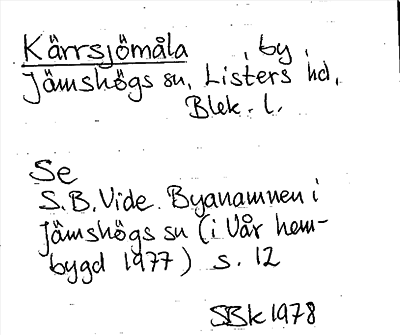 Kärrsjömåla , by ,
Jämshögs sn, Listers hd,
Blek. l.
Se
S.B. Vide. Byanamnen i
Jämshögs sn (i Vår hem-
bygd 1977) s. 12
SBk 1978